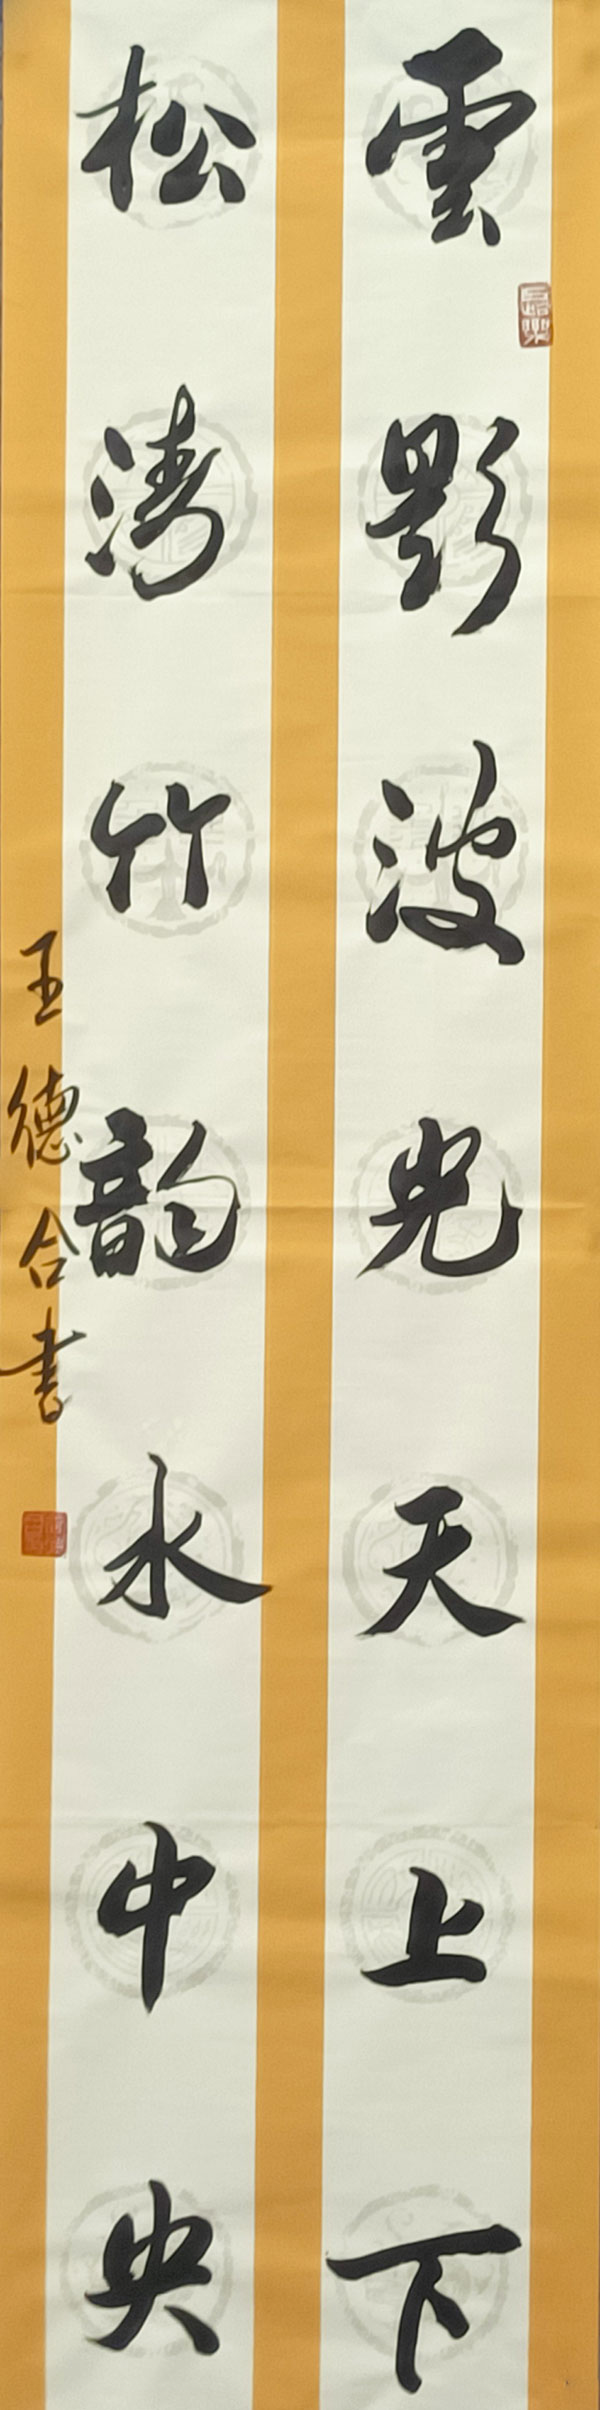 雲影波光天上下
松涛竹韵水中央
王德合書